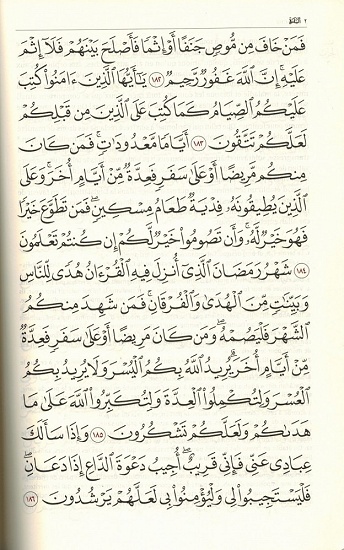 ٢ البقرة
فَمَنْ خَافَ مِن مُّوصٍ جَنَفًا أَوْ إِثْمًا فَأَصْلَحَ بَيْنَهُمْ فَلَآ إِثْمَ
عَلَيْهِ إِنَّ ٱللَّهَ غَفُورٌ رَّحِيمٌ ١٨٢ يَٰٓأَيُّهَا ٱلَّذِينَ ءَامَنُوا۟ كُتِبَ
عَلَيْكُمُ ٱلصِّيَامُ كَمَا كُتِبَ عَلَى ٱلَّذِينَ مِن قَبْلِكُمْ
لَعَلَّكُمْ تَتَّقُونَ ١٨٣ أَيَّامًا مَّعْدُودَٰتٍ فَمَن كَانَ
مِنكُم مَّرِيضًا أَوْ عَلَىٰ سَفَرٍ فَعِدَّةٌ مِّنْ أَيَّامٍ أُخَرَ وَعَلَى
ٱلَّذِينَ يُطِيقُونَهُۥ فِدْيَةٌ طَعَامُ مِسْكِينٍ فَمَن تَطَوَّعَ خَيْرًا
فَهُوَ خَيْرٌ لَّهُۥ وَأَن تَصُومُوا۟ خَيْرٌ لَّكُمْ إِن كُنتُمْ تَعْلَمُونَ
١٨٤ شَهْرُ رَمَضَانَ ٱلَّذِىٓ أُنزِلَ فِيهِ ٱلْقُرْءَانُ هُدًى لِّلنَّاسِ
وَبَيِّنَٰتٍ مِّنَ ٱلْهُدَىٰ وَٱلْفُرْقَانِ فَمَن شَهِدَ مِنكُمُ
ٱلشَّهْرَ فَلْيَصُمْهُ وَمَن كَانَ مَرِيضًا أَوْ عَلَىٰ سَفَرٍ فَعِدَّةٌ
مِّنْ أَيَّامٍ أُخَرَ يُرِيدُ ٱللَّهُ بِكُمُ ٱلْيُسْرَ وَلَا يُرِيدُ بِكُمُ
ٱلْعُسْرَ وَلِتُكْمِلُوا۟ ٱلْعِدَّةَ وَلِتُكَبِّرُوا۟ ٱللَّهَ عَلَىٰ مَا
هَدَىٰكُمْ وَلَعَلَّكُمْ تَشْكُرُونَ ١٨٥ وَإِذَا سَأَلَكَ
عِبَادِى عَنِّى فَإِنِّى قَرِيبٌ أُجِيبُ دَعْوَةَ ٱلدَّاعِ إِذَا دَعَانِ
فَلْيَسْتَجِيبُوا۟ لِى وَلْيُؤْمِنُوا۟ بِى لَعَلَّهُمْ يَرْشُدُونَ ١٨٦